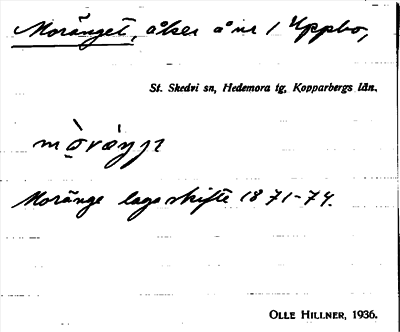 Moränget, åker å nr 1 Uppbo,
St. Skedvi sn, Hedemora tg, Kopparbergs län.
Moränge laga skifte 1871-74.
OLLE HILLNER, 1936.